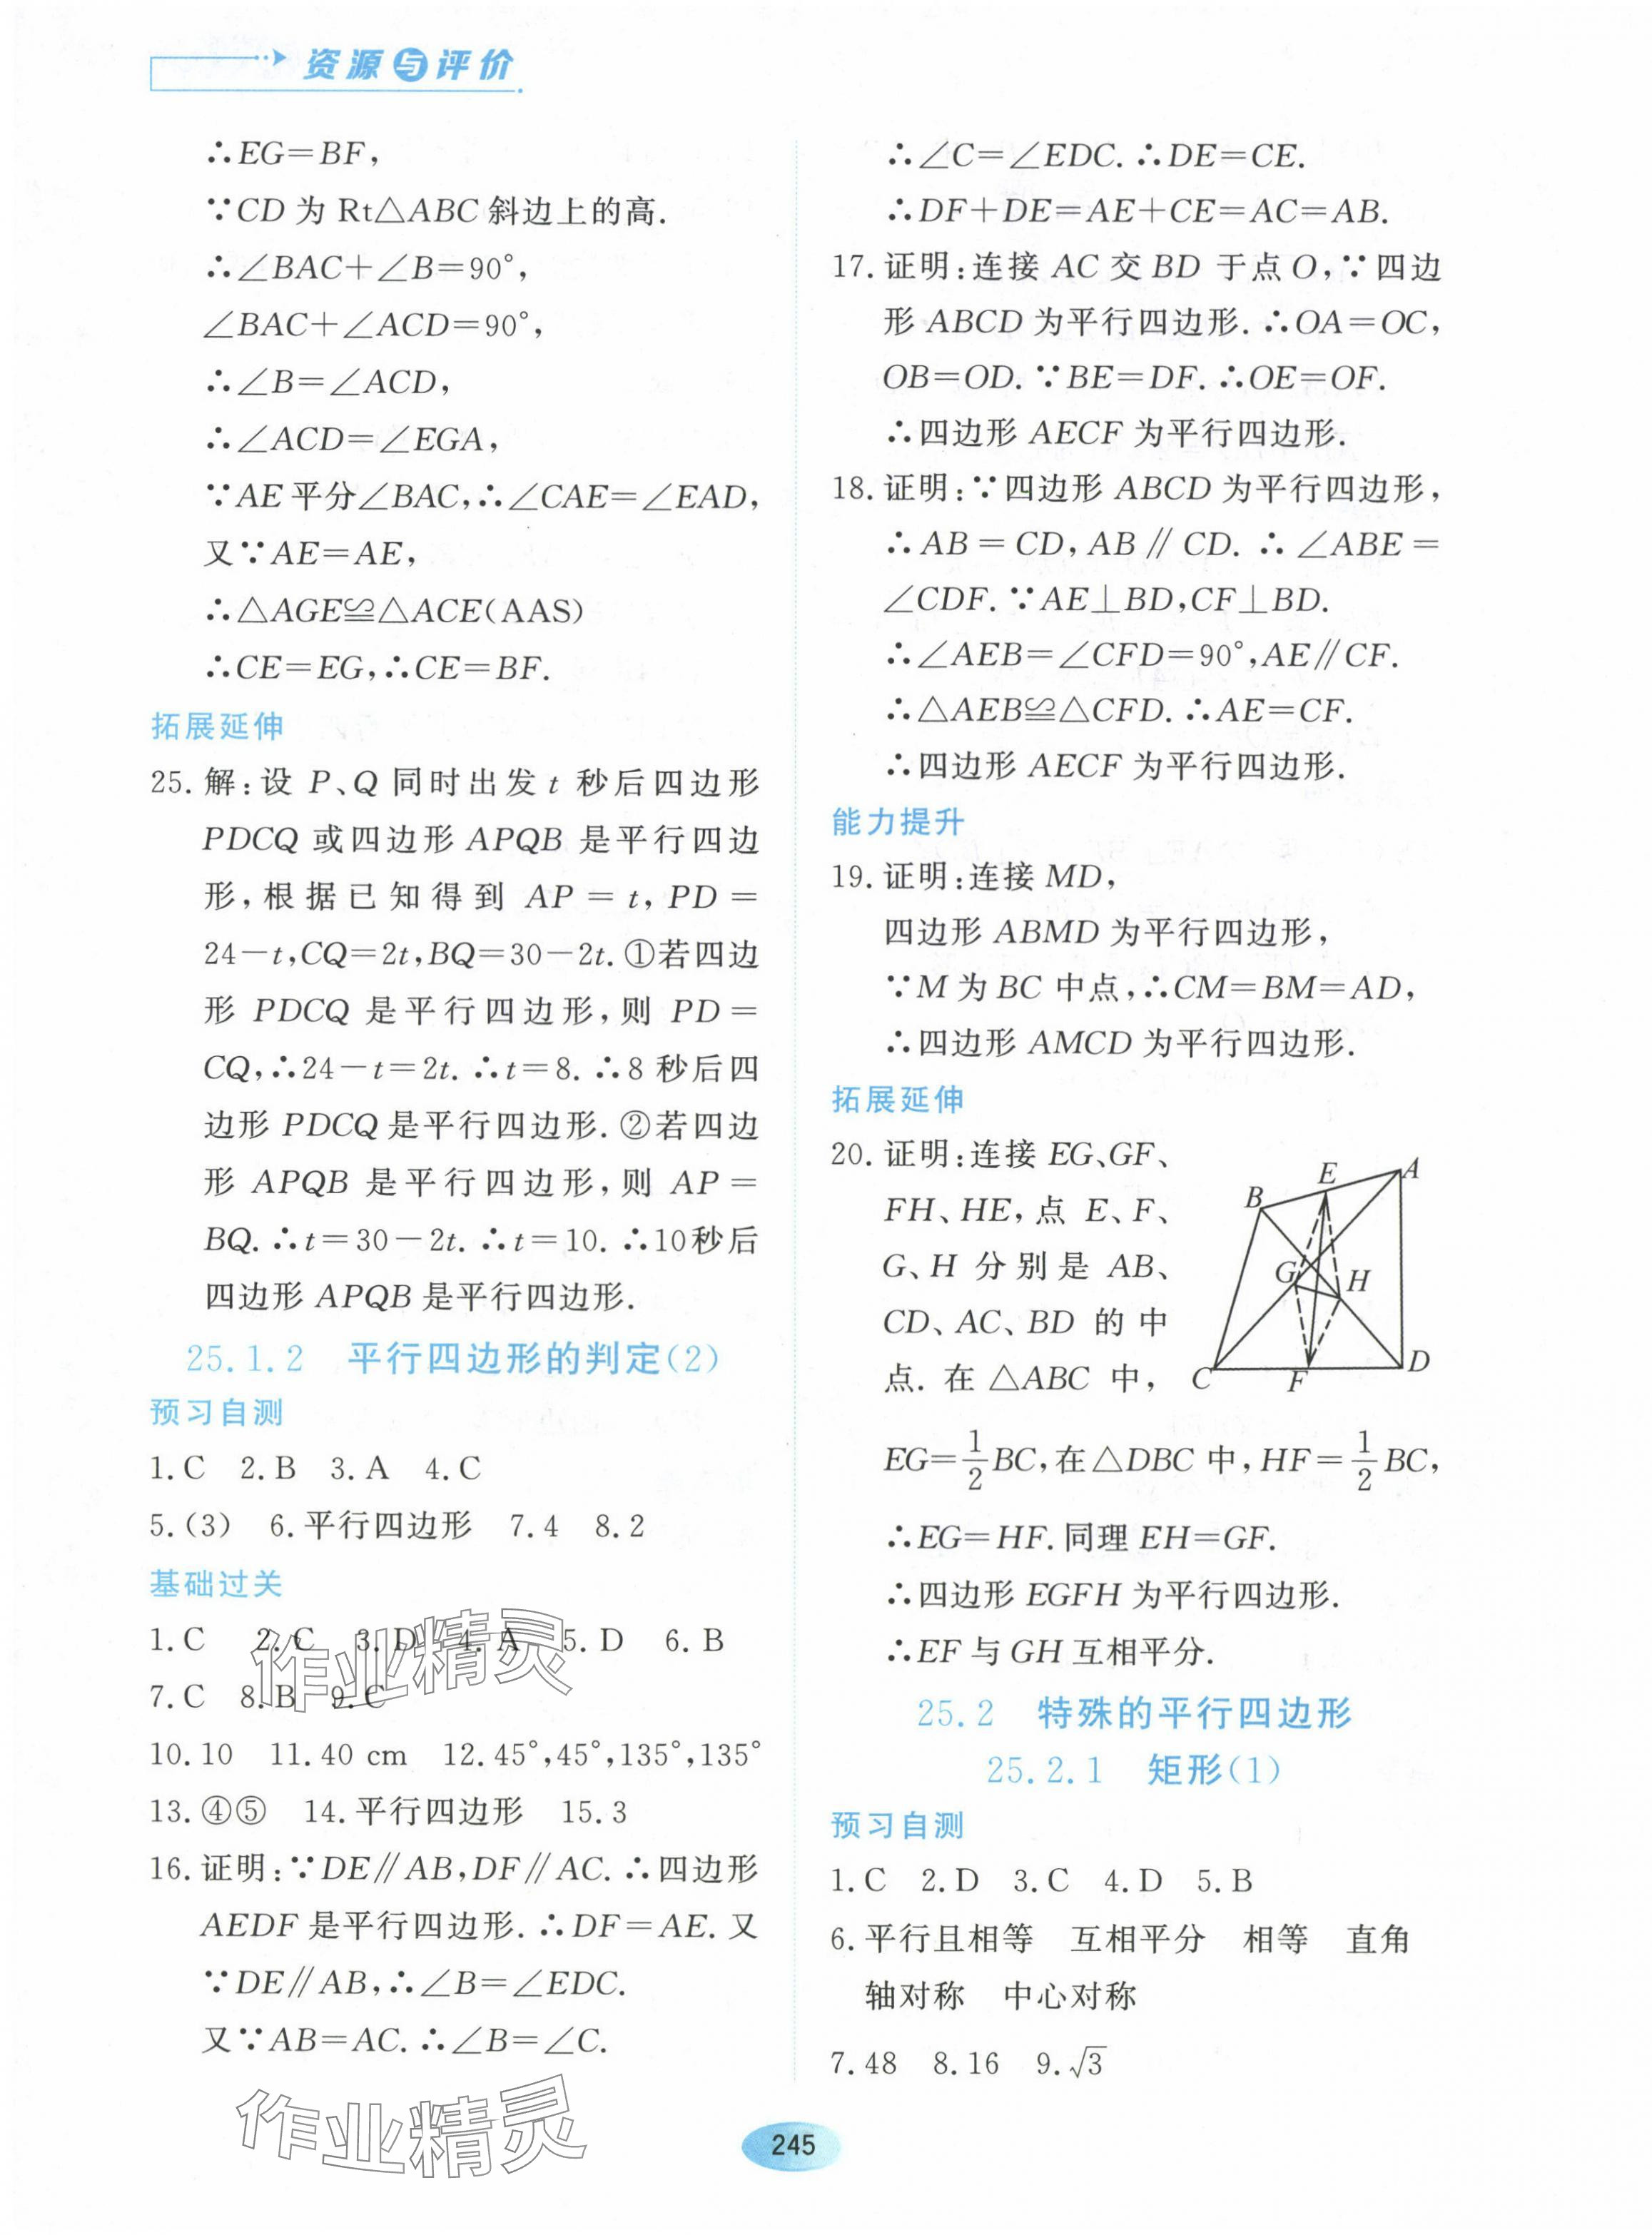 资源与评价
∴EG=BF,
∵CD为Rt△ABC斜边上的高.
∴∠BAC+∠B=90°,
∠BAC+∠ACD=90°,
∴∠B=∠ACD,
∴∠ACD=∠EGA,
∵AE平分∠BAC,∴∠CAE=∠EAD,
又∵AE=AE,
∴△AGE≌△ACE(AAS)
∴CE=EG,∴CE=BF.
拓展延伸
25. 解:设 P、Q 同时出发 t 秒后四边形
PDCQ 或四边形 APQB 是平行四边
形,根据已知得到 AP=t,PD=
24-t,CQ=2t,BQ=30-2t. ①若四边
形 PDCQ 是平行四边形,则 PD=
CQ,∴24-t=2t. ∴t=8. ∴8 秒后四
边形 PDCQ 是平行四边形. ②若四边
形 APQB 是平行四边形,则 AP=
BQ. ∴t=30-2t. ∴t=10. ∴10秒后
四边形 APQB 是平行四边形.
25.1.2 平行四边形的判定(2)
预习自测
1. C 2. B 3. A 4. C
5. (3) 6. 平行四边形 7. 4 8. 2
基础过关
1. C 2. C 3. D 4. A 5. D 6. B
7. C 8. B 9. C
10. 10 11. 40 cm 12. 45°,45°,135°,135°
13. ④⑤ 14. 平行四边形 15. 3
16. 证明:∵DE∥AB,DF∥AC. ∴四边形
AEDF 是平行四边形. ∴DF=AE. 又
∵DE∥AB,∴∠B=∠EDC.
又∵AB=AC. ∴∠B=∠C.
∴∠C=∠EDC. ∴DE=CE.
∴DF+DE=AE+CE=AC=AB.
17. 证明:连接 AC 交 BD 于点 O,∵四边
形 ABCD 为平行四边形. ∴OA=OC,
OB=OD. ∵BE=DF. ∴OE=OF.
∴四边形 AECF 为平行四边形.
18. 证明:∵四边形 ABCD 为平行四边形,
∴AB=CD,AB∥CD. ∴∠ABE=
∠CDF. ∵AE⊥BD,CF⊥BD.
∴∠AEB=∠CFD=90°,AE∥CF.
∴△AEB≌△CFD. ∴AE=CF.
∴四边形 AECF 为平行四边形.
能力提升
19. 证明:连接 MD,
四边形 ABMD 为平行四边形,
∵M 为 BC 中点,∴CM=BM=AD,
∴四边形 AMCD 为平行四边形.
拓展延伸
20. 证明:连接 EG、GF、
FH、HE,点 E、F、
G、H 分别是 AB、
CD、AC、BD 的中
点. 在 △ABC 中,
E A
B
G H
C F D
EG=1/2 BC,在△DBC 中,HF=1/2 BC,
∴EG=HF. 同理 EH=GF.
∴四边形 EGFH 为平行四边形.
∴EF 与 GH 互相平分.
25.2 特殊的平行四边形
25.2.1 矩形(1)
预习自测
1. C 2. D 3. C 4. D 5. B
6. 平行且相等 互相平分 相等 直角
轴对称 中心对称
7. 48 8. 16 9. √3
作业精灵
作业精灵
245